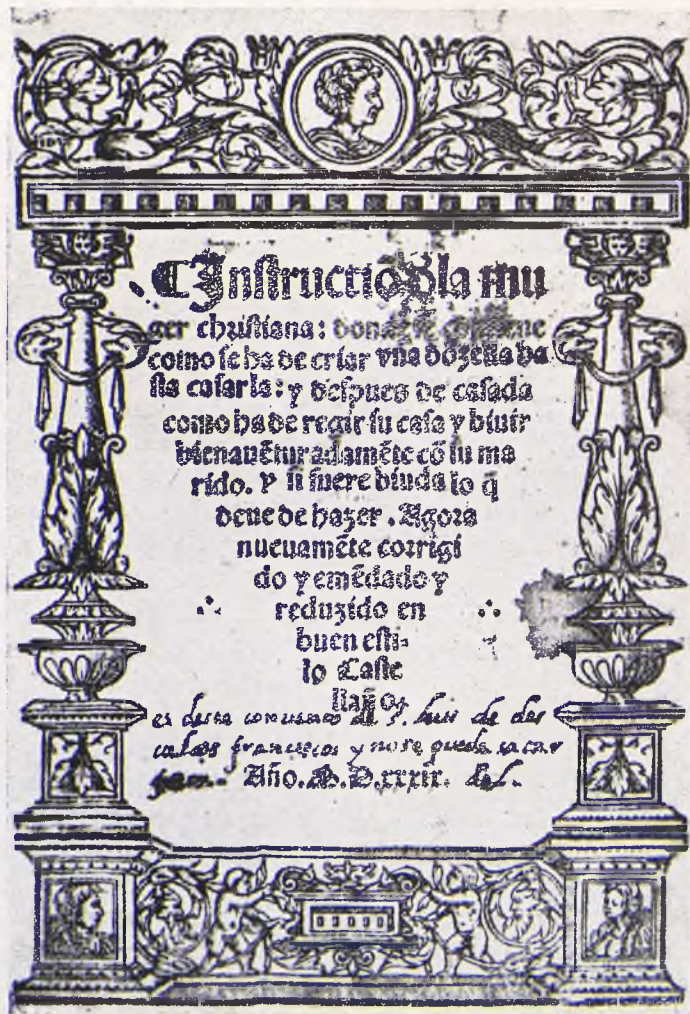 Instructiō dla mu
ger christiana: donde se contiene
como se ha de criar vna dōzella ha
sta casarla: y despues de casada
como ha de regir su casa y biuir
bienauēturadamēte cō su ma
rido. y si fuere biuda lo q̄
deue de hazer. Agora
nueuamēte corrigi
do y emēdado y
reduzido en
buen esti-
lo Caste
llano.
es deste conuento de S. de des
calços franciscos y no se puede sacar
Año. M.D.xxxix.